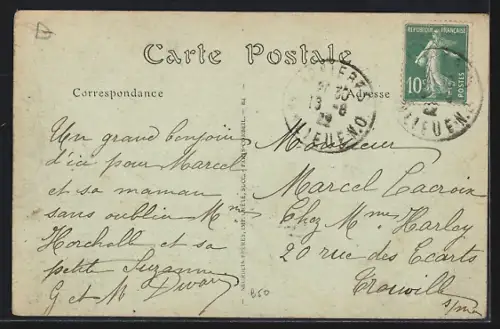 Carte Postale
Correspondance
Adresse
RÉPUBLIQUE FRANÇAISE
10c
POSTES
13 - 8
Un grand bonjour
d'ici pour Marcel
et sa maman
sans oublier Mme
Horcholl et sa
petite Suzanne
G et M
Monsieur
Marcel Lacroix
Chez Mme Harley
20 rue des Ecarts
Trouville
s/mer
850